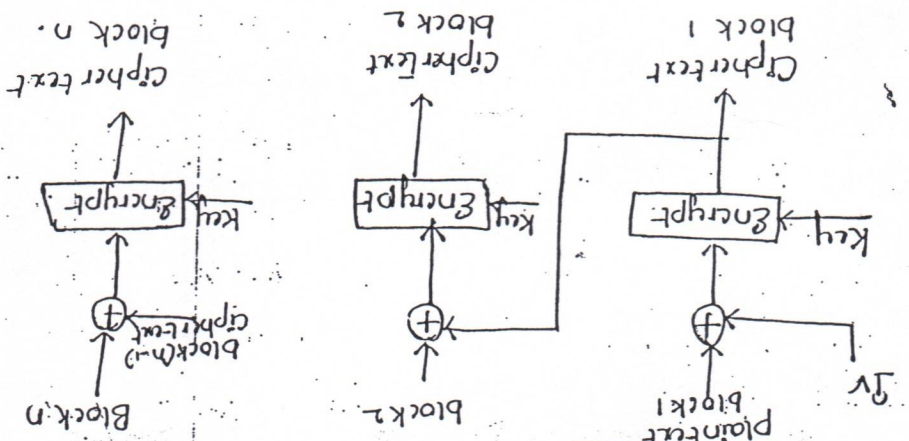 IV
plaintext
block 1
block 2
Block n
block(n-1)
cipher
text
Key
Encrypt
Key
Encrypt
Key
Encrypt
Cipher text
block 1
Cipher Text
block 2
Cipher text
block n.